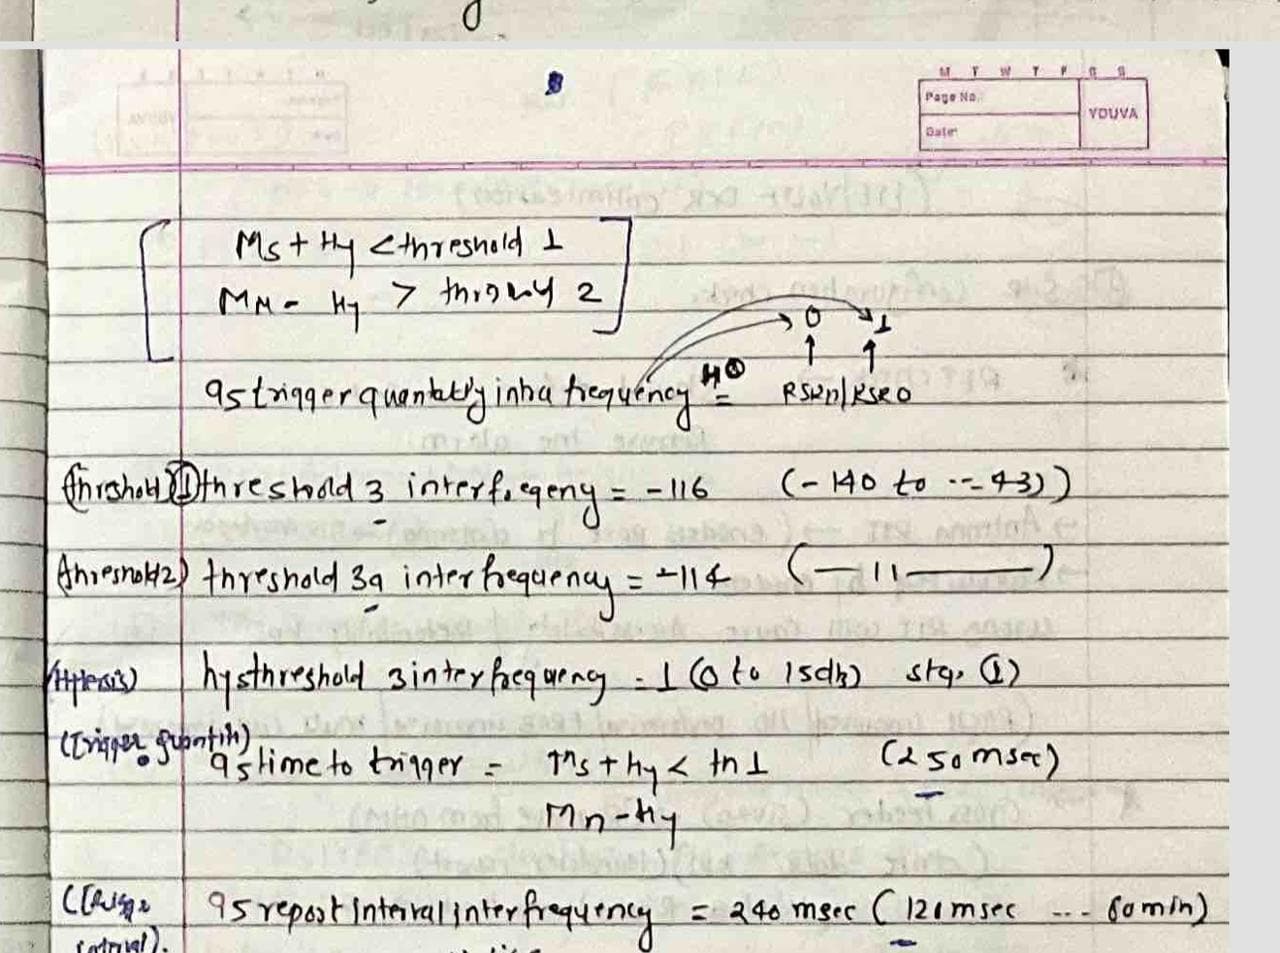 M T W T F S S
Page No.:
Date:
YOUVA
Ms + Hy < threshold 1
MN - Hy > 2
0 1
a5 trigger quantatly intra frequency = RSRP/RSRQ
(threshold 1) threshold 3 interfreqeny = -116 (-140 to ---43))
(threshold2) threshold 3a interfrequency = -114 (— 11 —)
(Hyteresis) hysthreshold 3 interfrequency = 1 (0 to 15db) (1)
(Trigger quantity)
a5 time to trigger = Ms + hy < th 1 (250 msec)
Mn - Hy
a5 report interval interfrequency = 240 msec (120 msec --- 60 min)
interval).